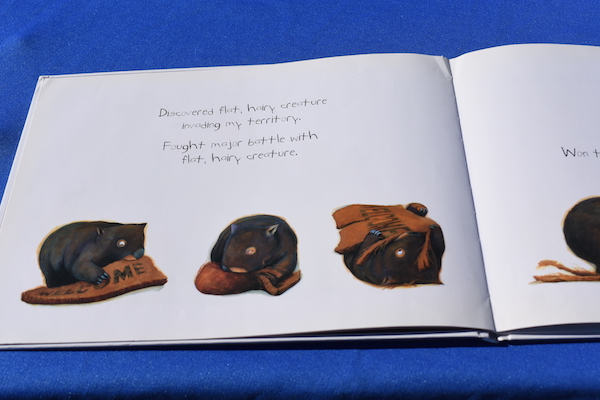 Discovered flat, hairy creature
invading my territory.
Fought major battle with
flat, hairy creature.
Won t
WEL ME